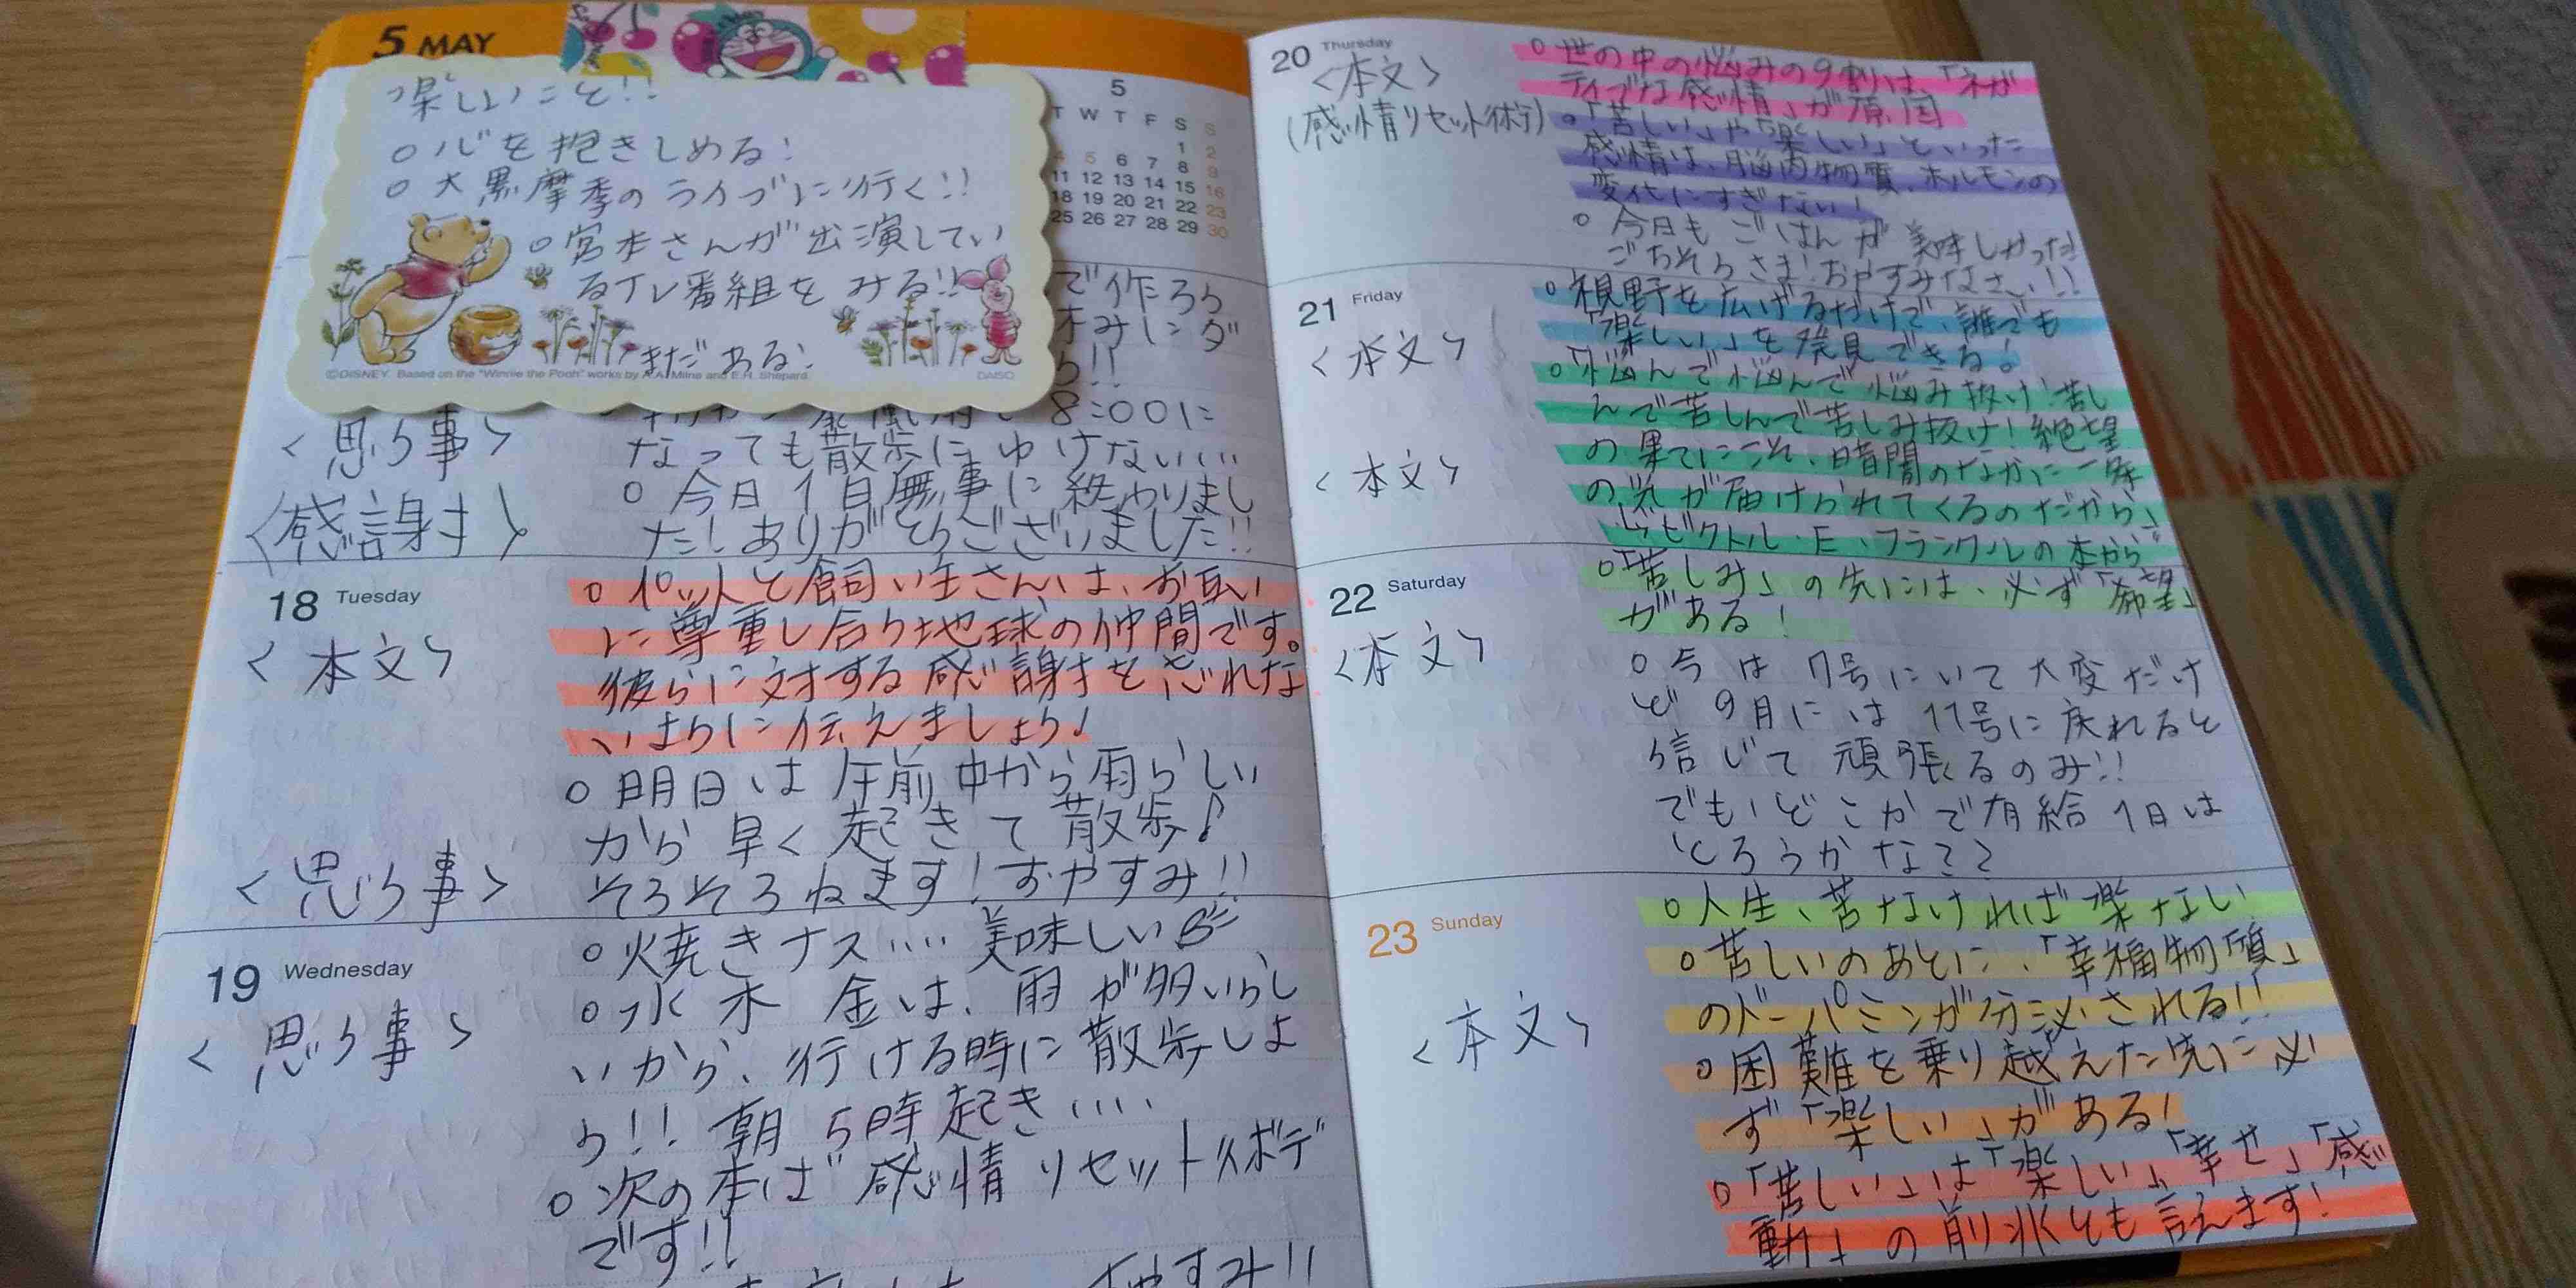 5 MAY
楽しいこと!!
○心を抱きしめる!
○大黒摩季のライブに行く!!
○宮本さんが出演してい
るTV番組をみる!!
まだある!
©DISNEY. Based on the "Winnie the Pooh" works by A.A. Milne and E.H. Shepard.
DAISO
5
T W T F S S
1 2
4 5 6 7 8 9
11 12 13 14 15 16
18 19 20 21 22 23
25 26 27 28 29 30
で作ろう
休みにダ
う!!
<思う事>
8:00に
なっても散歩にゆけない...
<感謝>
○今日1日無事に終わりまし
た!ありがとうございました!!
18 Tuesday
<本文>
○ペットと飼い主さんは、お互い
に尊重し合う地球の仲間です。
彼らに対する感謝を忘れな
いように伝えましょう!
○明日は午前中から雨らしい
から早く起きて散歩♪
<思う事>
そろそろねます!おやすみ!!
19 Wednesday
<思う事>
○焼きナス....美味しい
○水木金は、雨が多いらし
いから、行ける時に散歩しよ
う!!朝5時起き....
○次の本は"感情リセット術デ
です!!
おやすみ!!
20 Thursday
<本文>
○世の中の悩みの9割は、「ネガ
ティブな感情」が原因
○「苦しい」や「楽しい」といった
感情は、脳内物質、ホルモンの
変化にすぎない!
○今日もごはんが美味しかった!
ごちそうさま!おやすみなさい!!
21 Friday
<本文>
○視野を広げるだけで、誰でも
「楽しい」を発見できる!
<本文>
○「悩んで悩んで悩み抜け!苦し
んで苦しんで苦しみ抜け!絶望
の果てにこそ、暗闇のなかに一条
の光が届けられてくるのだから」
ビクトル・E・フランクルの本から
22 Saturday
<本文>
○「苦しみ」の先には、必ず「希望」
がある!
○今は7号にいて大変だけ
ど9月には11号に戻れると
信じて頑張るのみ!!
でも、どこかで有給1日は
とろうかなてて
23 Sunday
<本文>
○人生、苦なければ楽なし
○苦しいのあとに、「幸福物質」
のドーパミンが分泌される!!
○困難を乗り越えた先に必
ず「楽しい」がある!
○「苦しい」は「楽しい」「幸せ」「感
動」の前兆とも言えます!